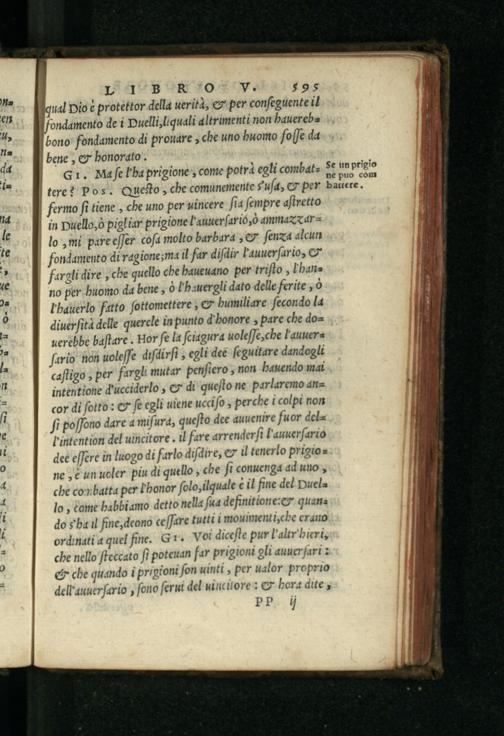 LIBRO V. 595
qual Dio è protettor della uerità, & per conseguente il
fondamento de i Duelli, liquali altrimenti non hauereb-
bono fondamento di prouare, che uno huomo fosse da
bene, & honorato.
GI. Ma se l'ha prigione, come potrà egli combat-
tere? POS. Questo, che comunemente s'usa, & per
fermo si tiene, che uno per uincere sia sempre astretto
in Duello, ò pigliar prigione l'auuersario, ò ammazzar-
lo, mi pare esser cosa molto barbara, & senza alcun
fondamento di ragione; ma il far disdir l'auuersario, &
fargli dire, che quello che haueuano per tristo, l'han-
no per huomo da bene, ò l'hauergli dato delle ferite, ò
l'hauerlo fatto sottomettere, & humiliare secondo la
diuersità delle querele in punto d'honore, pare che do-
uerebbe bastare. Hor se la sciagura uolesse, che l'auuer-
sario non uolesse disdirsi, egli dee seguitare dandogli
castigo, per fargli mutar pensiero, non hauendo mai
intentione d'ucciderlo, & di questo ne parlaremo an-
cor di sotto: & se egli uiene ucciso, perche i colpi non
si possono dare a misura, questo dee auuenire fuor del-
l'intention del uincitore. il fare arrendersi l'auuersario
dee essere in luogo di farlo disdire, & il tenerlo prigio-
ne, è un uoler piu di quello, che si conuenga ad uno,
che combatta per l'honor solo, ilquale è il fine del Duel-
lo, come habbiamo detto nella sua definitione: & quan-
do s'ha il fine, deono cessare tutti i mouimenti, che erano
ordinati a quel fine. GI. Voi diceste pur l'altr'hieri,
che nello steccato si poteuan far prigioni gli auuersari:
& che quando i prigioni son uinti, per ualor proprio
dell'auuersario, sono serui del uincitore: & hora dite,
PP ij
Se un prigio
ne puo com
battere.